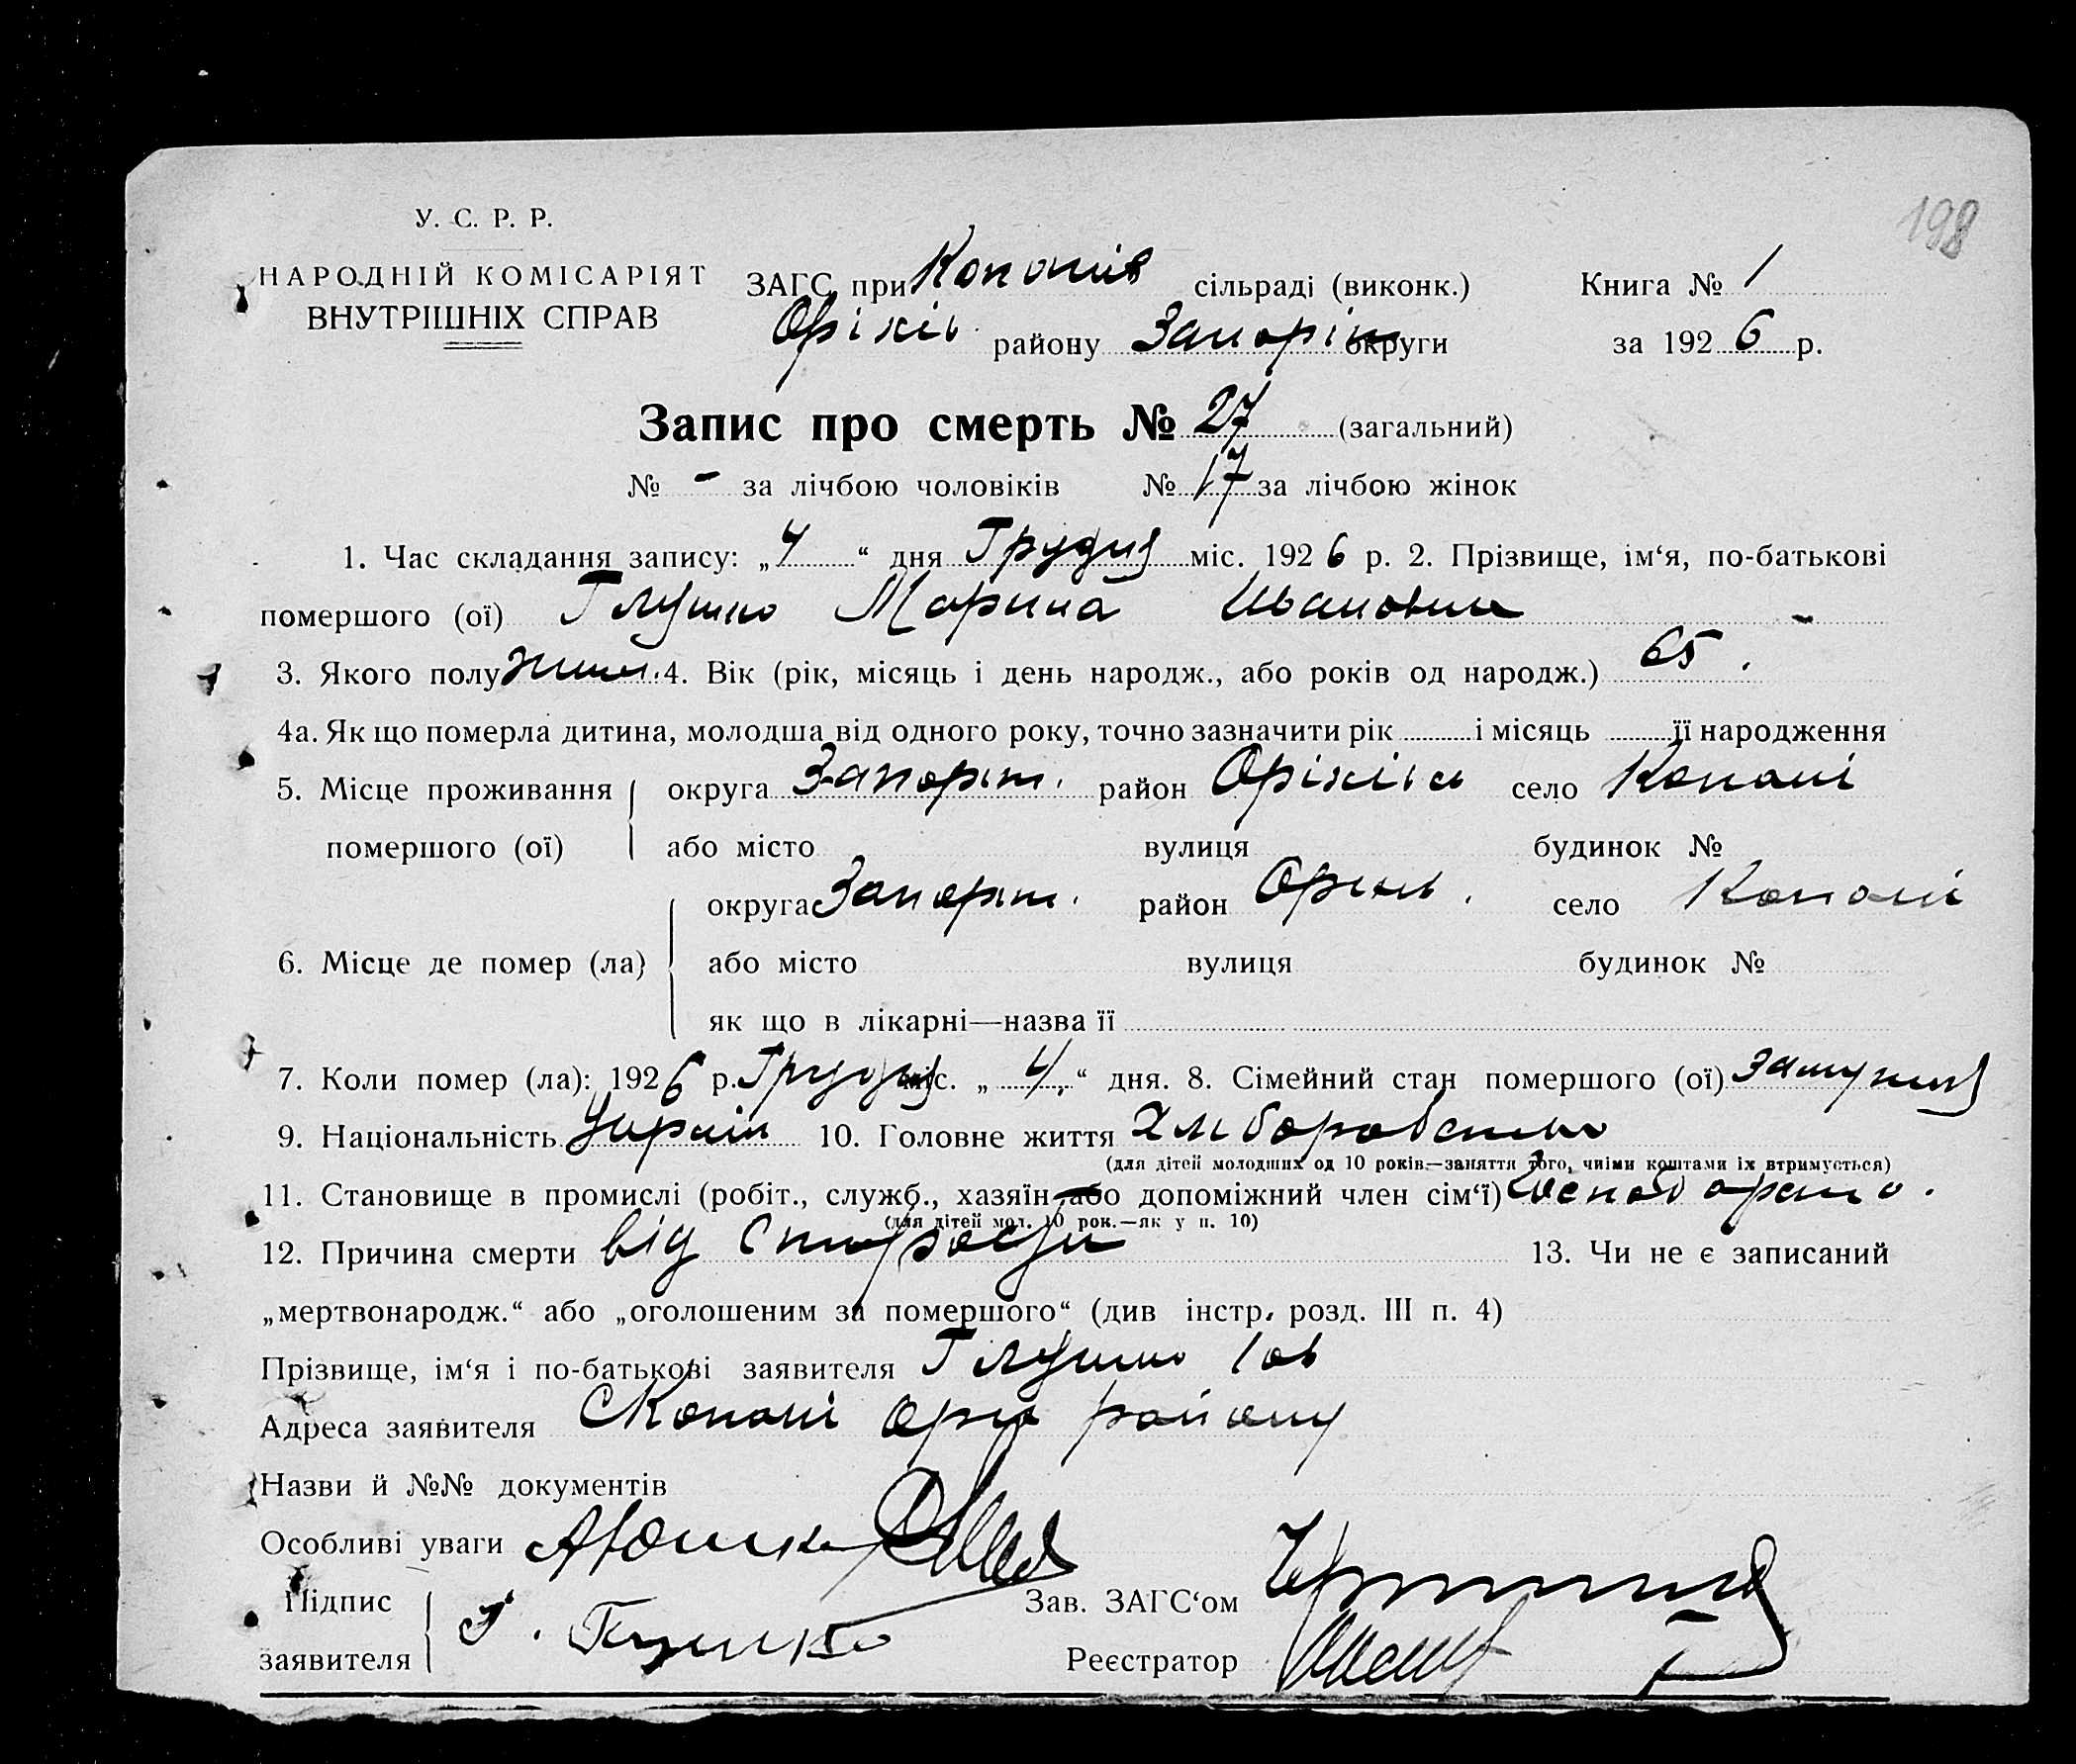 198
У. С. Р. Р.
НАРОДНІЙ КОМІСАРІЯТ
ВНУТРІШНІХ СПРАВ
ЗАГС при Копанів сільраді (виконк.) Книга № 1
Оріхів. району Запоріж округи за 1926 р.
Запис про смерть № 27 (загальний)
№ - за лічбою чоловіків № 17 за лічбою жінок
1. Час складання запису: „4“ дня Грудня міс. 1926 р. 2. Прізвище, ім‘я, по-батькові
помершого (ої) Глушко Марина Ивановна
3. Якого полу жін. 4. Вік (рік, місяць і день народж., або років од народж.) 65.
4а. Як що померла дитина, молодша від одного року, точно зазначити рік і місяць її народження
5. Місце проживання округа Запоріж. район Оріхівсь село Копані
помершого (ої) або місто вулиця будинок №
округа Запоріж. район Оріхів. село Копані
6. Місце де помер (ла) або місто вулиця будинок №
як що в лікарні—назва її
7. Коли помер (ла): 1926 р. Грудня міс. „4“ дня. 8. Сімейний стан помершого (ої) замужня
9. Національність Україн 10. Головне життя Хліборобство
(для дітей молодших од 10 років.—заняття того, чиіми коштами іх втримується)
11. Становище в промислі (робіт., служб., хазяїн або допоміжний член сім‘ї)
(для дітей мол. 10 рок.—як у п. 10)
12. Причина смерти від старости 13. Чи не є записаний
„мертвонародж.“ або „оголошеним за помершого“ (див інстр. розд. III п. 4)
Прізвище, ім‘я і по-батькові заявителя Глушко Іов
Адреса заявителя С Копані Оріх району
Назви й №№ документів
Особливі уваги
Підпис Зав. ЗАГС‘ом
заявителя Реєстратор